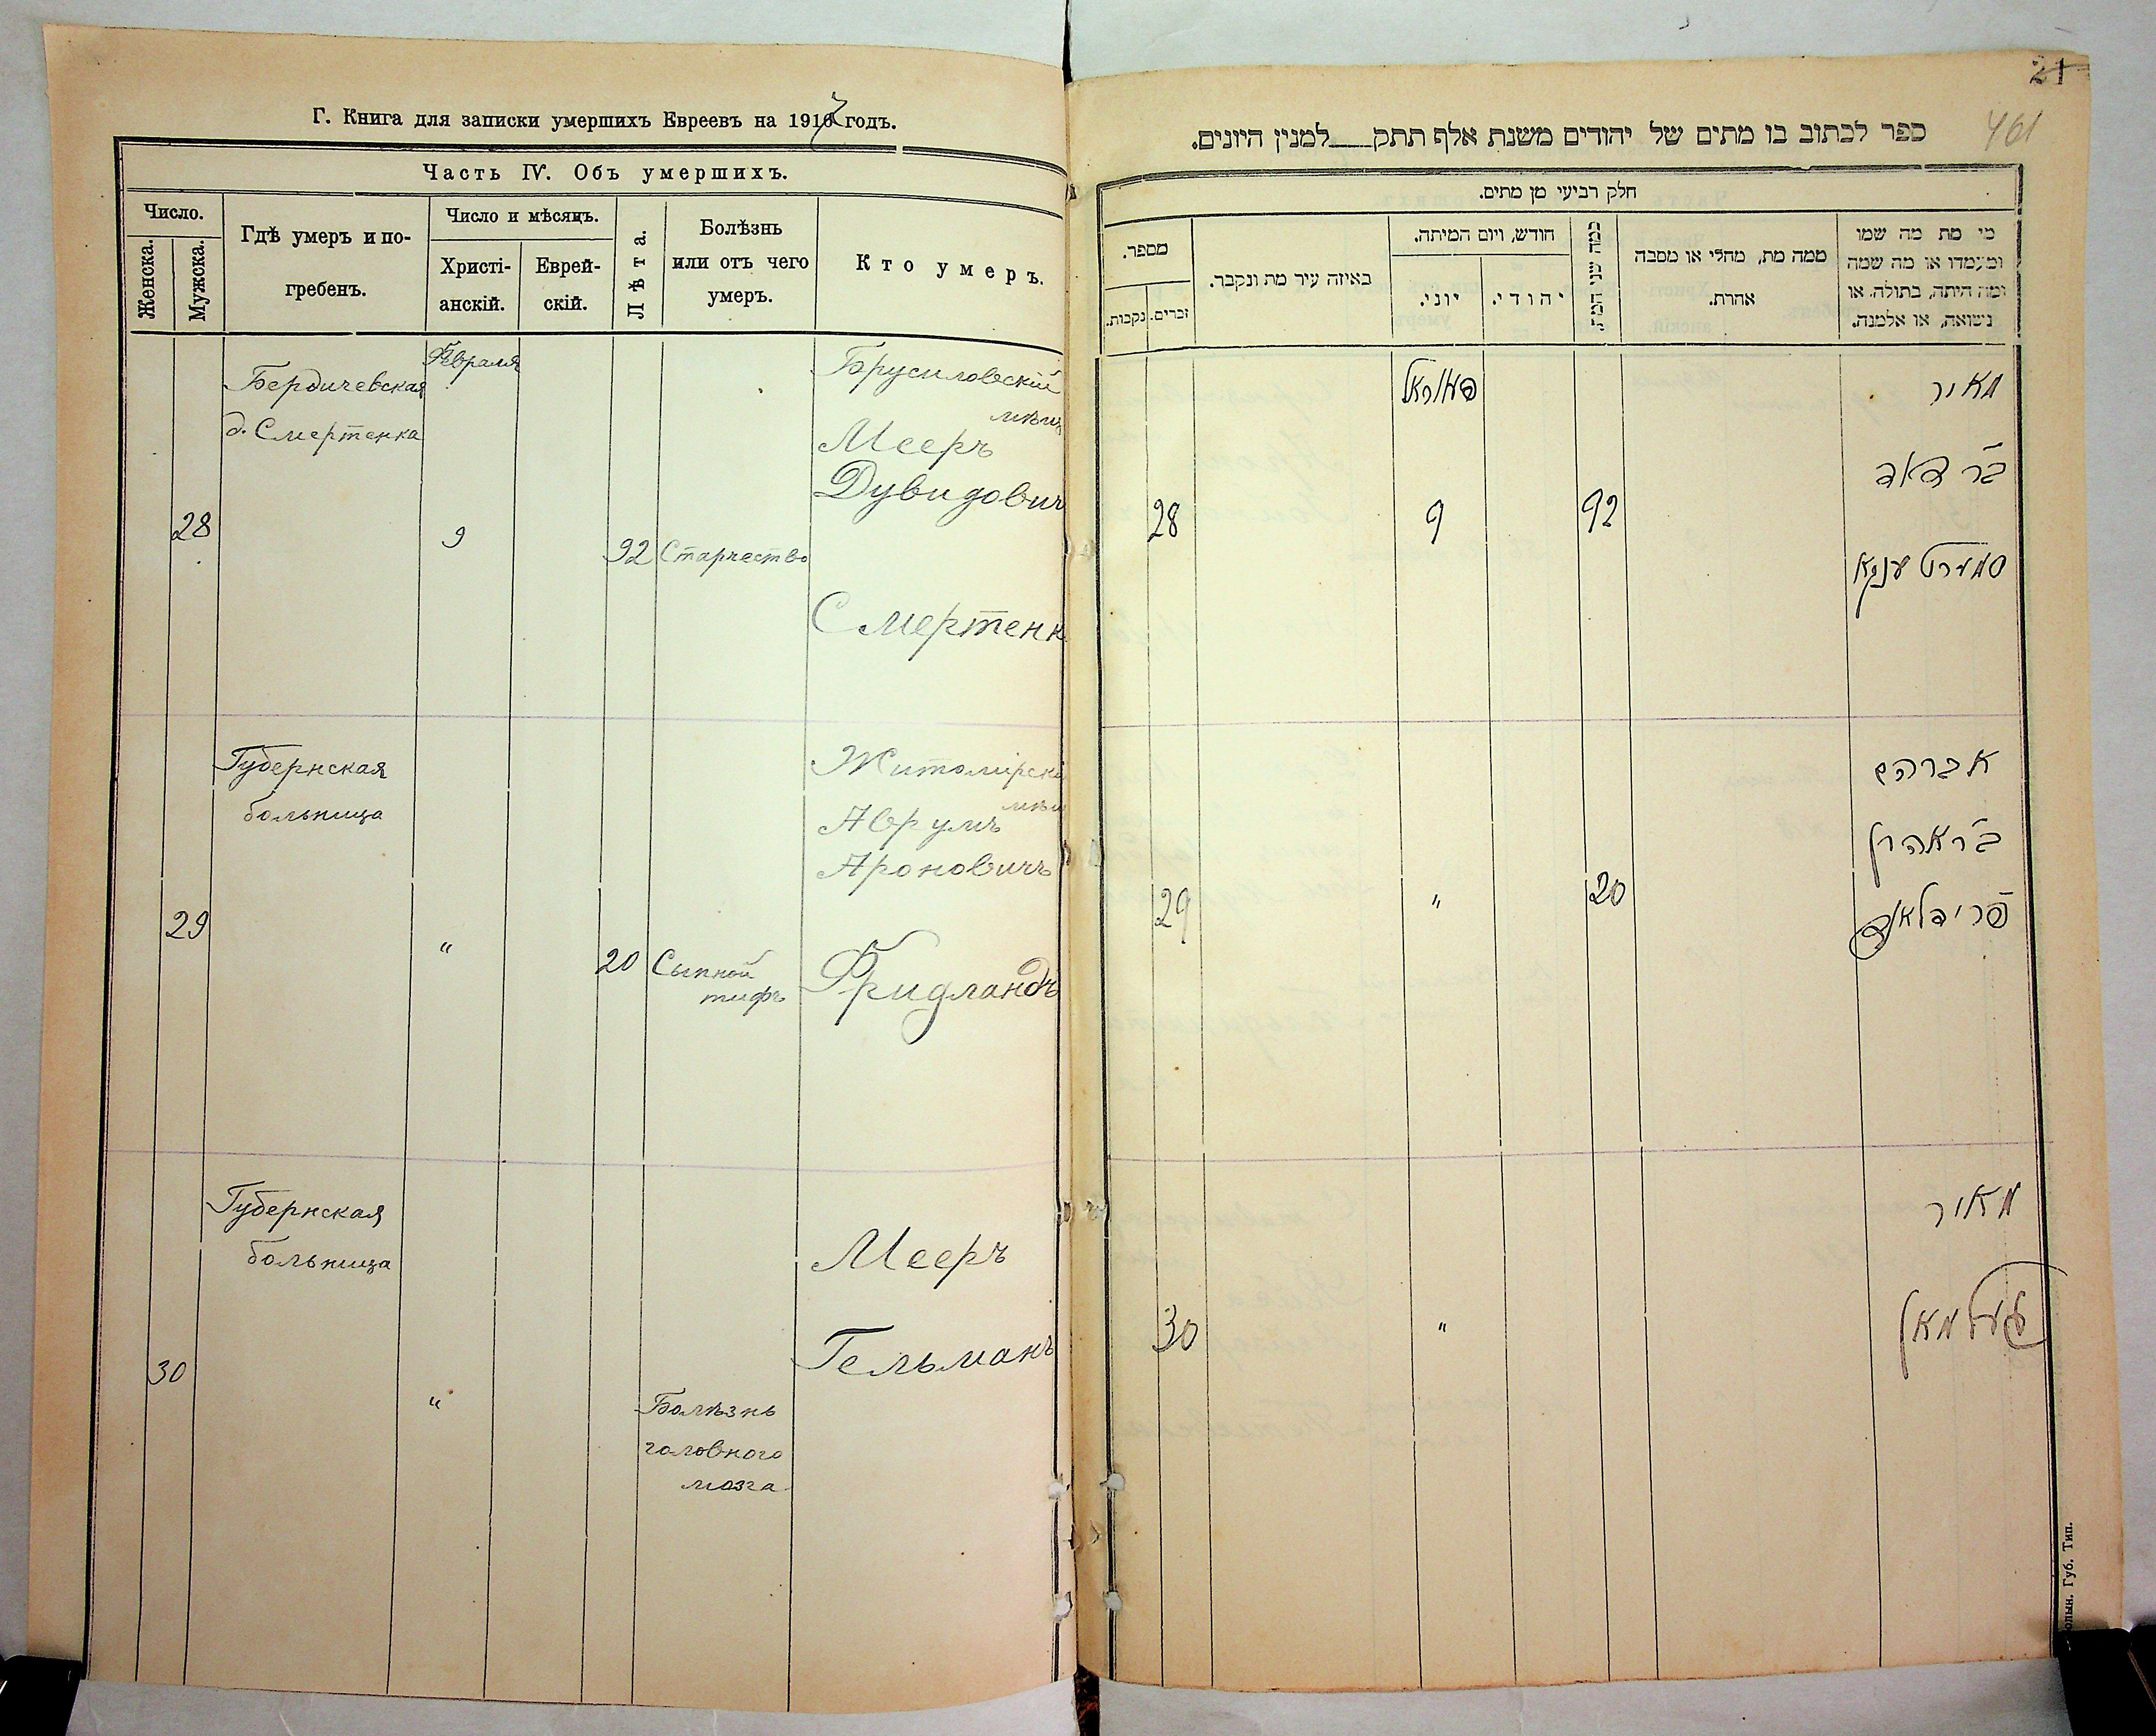 Г. Книга для записки умершихъ Евреевъ на 1917 годъ.
Часть IV. Объ умершихъ.
Число.
Женска.
Мужска.
Гдѣ умеръ и по-
гребенъ.
Число и мѣсяцъ.
Христі-
анскій.
Еврей-
скій.
Лѣта.
Болѣзнь
или отъ чего
умеръ.
Кто умеръ.
Февраля
Бердичевская
д. Смертенка
28
9
92
Старчество
Брусиловскій
мѣщ
Мееръ
Дувидович
Смертенк
Губернская
больница
29
"
20
Сыпной
тифъ
Житомірскі
мѣщ
Аврумъ
Ароновичъ
Фридландъ
Губернская
больница
30
"
Болѣзнь
головного
мозга
Мееръ
Гельманъ
21
461
ספר לכתוב בו מתים של יהודים משנת אלף תתק למנין היונים.
חלק רביעי מן מתים.
מספר.
נקבות.
זכרים.
באיזה עיר מת ונקבר.
חודש, ויום המיתה.
יוני.
יהודי.
כמה שני המת.
ממה מת, מחלי או מסבה
אחרת.
מי מת מה שמו
ומעמדו או מה שמה
ומה היתה, בתולה, או
נשואה, או אלמנה.
28
9
92
מאיר
ב״ר דאד
סמערטענקא
29
"
20
אברהם
ב״ר אהרן
פרידלאנד
30
"
מאיר
געלמאן
олын. Губ. Тип.